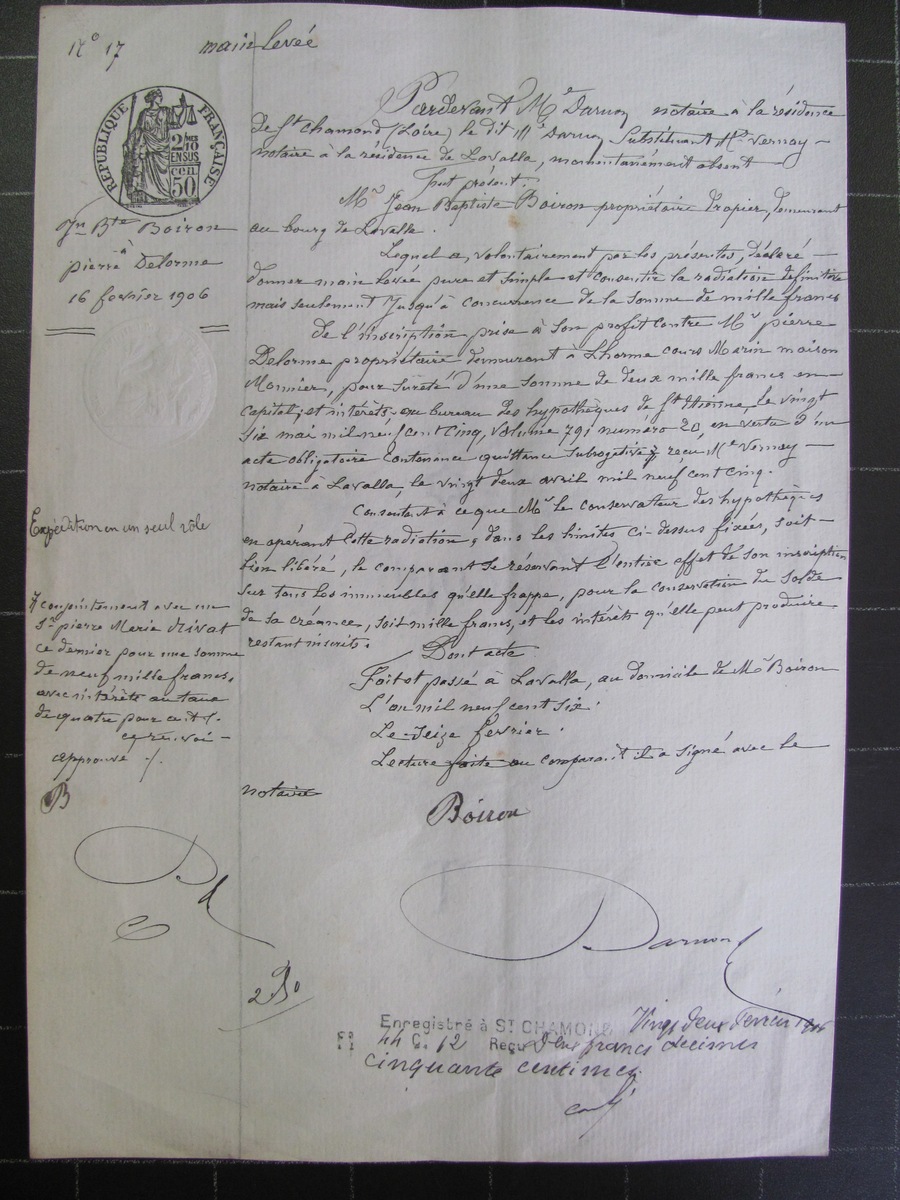 N° 17 main levée
RÉPUBLIQUE FRANÇAISE
2/10 EN SUS
50 cen
Jn Bte Boiron
à
pierre Delorme
16 fevrier 1906
Expédition en un seul rôle
conjointement avec un
Sr pierre Marie Rivat
ce dernier pour une somme
de neuf mille francs,
avec intérêts au taux
de quatre pour cent /.
ce renvoi
approuvé /.
B
Pardevant Me Darnon notaire à la résidence
de St Chamond (Loire) le dit Me Darnon Substituant Me Vernay
notaire à la résidence de Lavalla, momentanément absent
Fut présent:
Mr Jean Baptiste Boiron propriétaire drapier, demeurant
au bourg de Lavalla.
Lequel a, volontairement par les présentes, déclaré
donner main levée pure et simple et consentir la radiation definitive
mais seulement jusqu'à concurrence de la somme de mille francs
De l'inscription prise à son profit contre Mr pierre
Delorme propriétaire demeurant à Lhorme cours Marin maison
Monnier, pour sureté d'une somme de deux mille francs en
capital, et intérêts au bureau des hypothèques de St Etienne, le vingt
six mai mil neuf cent cinq, volume 791 numéro 20, en vertu d'un
acte obligatoire contenance quittance subrogative reçu Me Vernay
notaire à Lavalla, le vingt deux avril mil neuf cent cinq.
Consentant à ce que Mr le conservateur des hypothèques
en opérant cette radiation, dans les limites ci-dessus fixées, soit
bien libéré, le comparant se réservant l'entier effet de son inscription
sur tous les immeubles qu'elle frappe, pour la conservation du solde
de sa créance, soit mille francs, et les intérêts qu'elle peut produire
restant inscrits.
Dont acte
Fait et passé à Lavalla, au domicile de Mr Boiron
L'an mil neuf cent six.
Le Seize fevrier.
Lecture faite au comparant il a signé avec le
notaire
Boiron
Darnon
Enregistré à ST CHAMOND Vingt deux Février 1906
F° 44 C. 12 Reçu deux francs decimes
cinquante centimes.